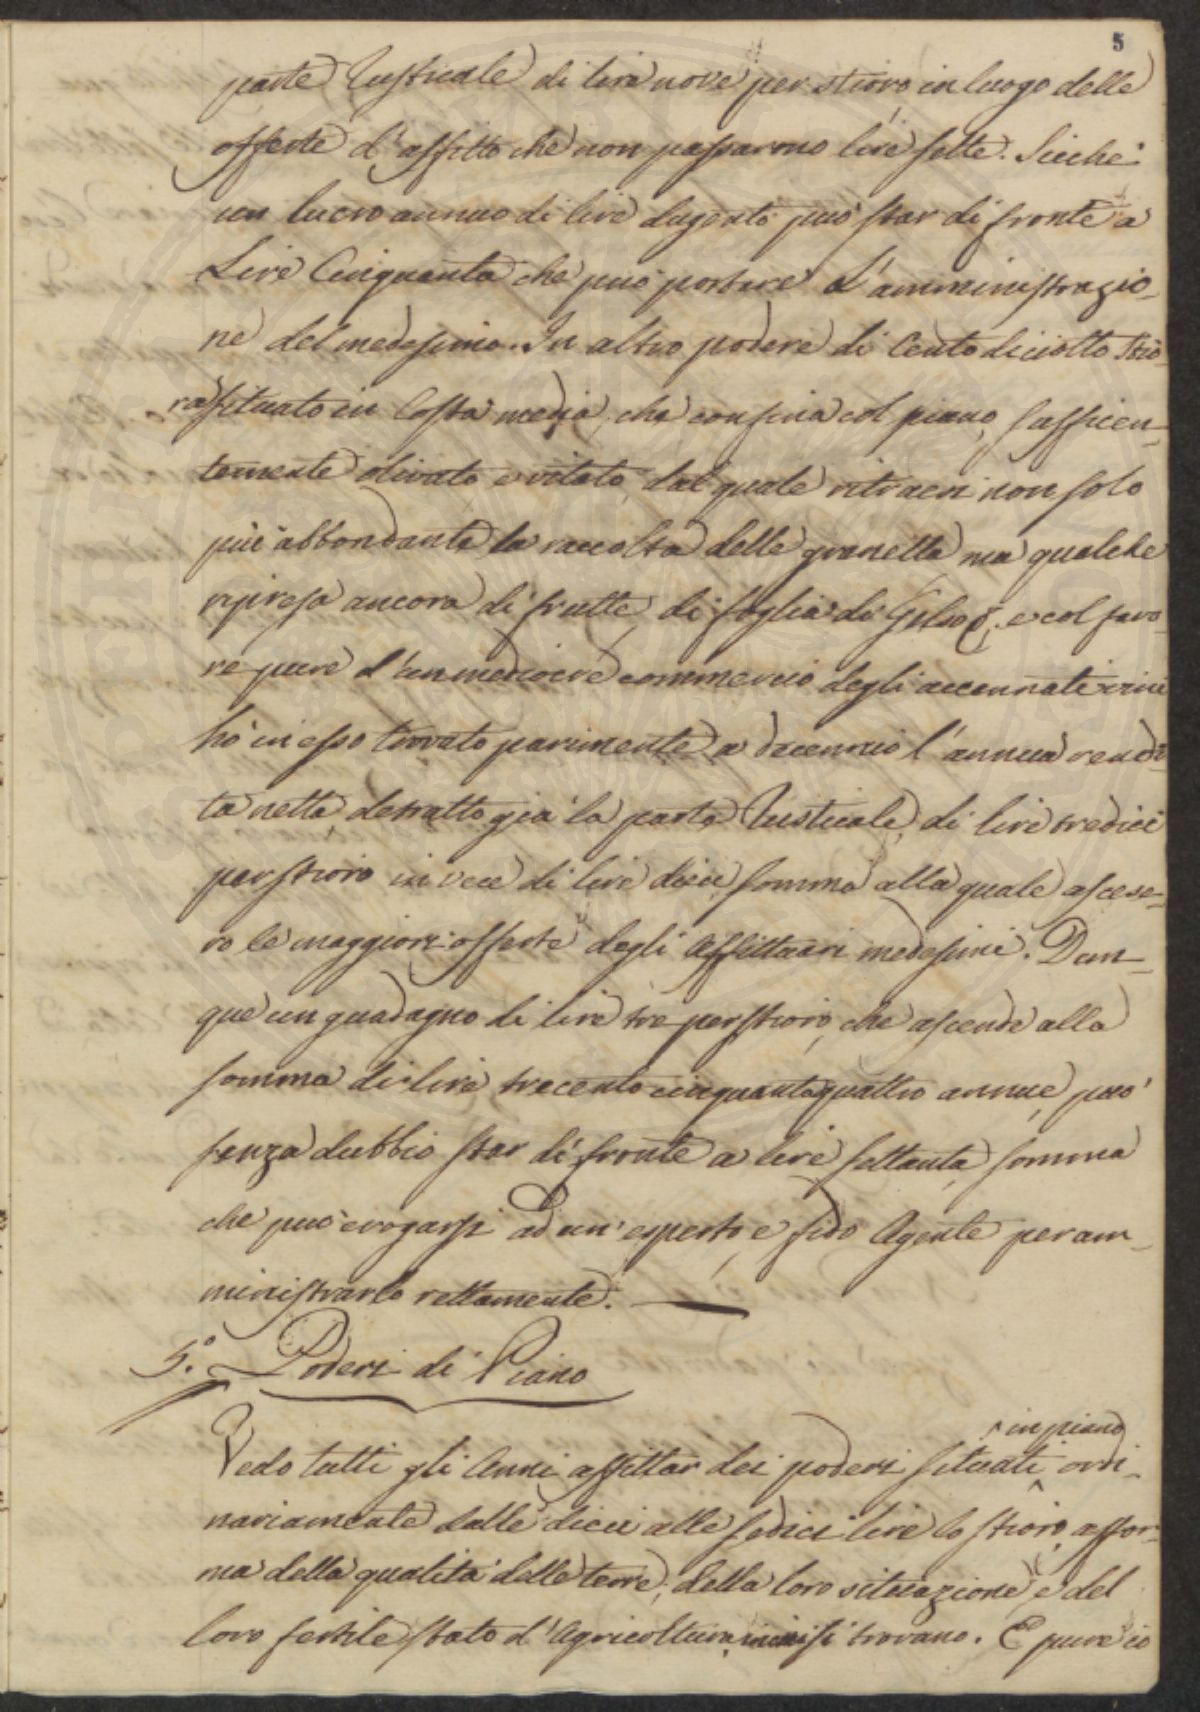 5
parte Rusticale di lire nove per stioro in luogo delle
offerte d'affitto che non passarono lire sette. Sicchè
un lucro annuo di lire dugento può star di fronte a
Lire Cinquanta che può portare l'amministrazio-
ne del medesimo. In altro podere di Cento diciotto Stio-
ra situato in Costa media, che confina col piano, sufficien-
temente olivato e vitato, dal quale ritraesi non solo
più abbondante la raccolta delle granella ma qualche
ripresa ancora di frutte, di foglia di Gelso &. e col favo-
re pure d'un mediocre commercio degli accennati vini
hò in esso trovato parimente a decennio l'annua rendi-
ta netta, detratto già la parte Rusticale, di lire tredici
per stioro in vece di lire dieci somma alla quale ascese-
ro le maggiori offerte degli Affittuari medesimi. Dun-
que un guadagno di lire tre per stioro, che ascende alla
somma di lire trecento cinquantaquattro annue, può
senza dubbio star di fronte a lire settanta, somma
che può erogarsi ad un' esperto, e fido Agente per am-
ministrarlo rettamente.
5.° Poderi di Piano
Vedo tutti gli Anni affittar dei poderi situati in piano ordi-
nariamente dalle dieci alle sedici lire lo stioro, a for-
ma della qualità delle terre, della loro situazione e del
loro fertile stato d'Agricoltura si trovano. E pure io